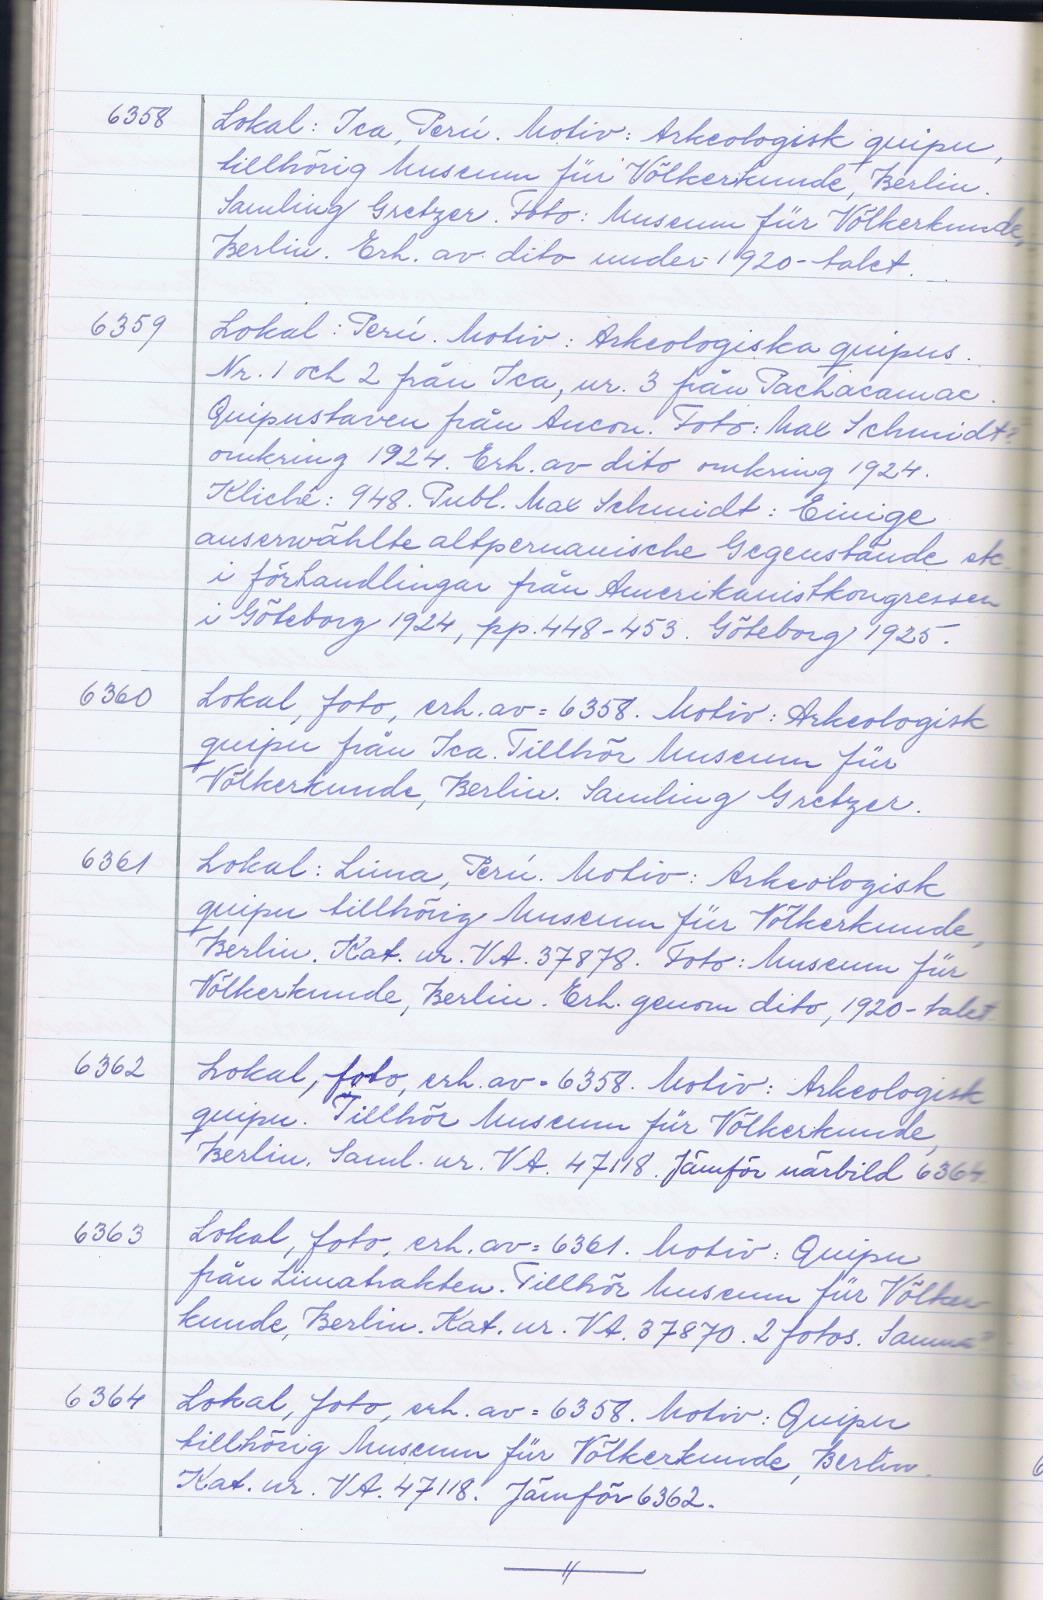 6358 Lokal: Ica, Perú. Motiv: Arkeologisk quipu,
tillhörig Museum für Völkerkunde, Berlin.
Samling Gretzer. Foto: Museum für Völkerkunde,
Berlin. Erh. av dito under 1920-talet.
6359 Lokal: Perú. Motiv: Arkeologiska quipus.
Nr. 1 och 2 från Ica, nr. 3 från Pachacamac.
Quipustaven från Ancon. Foto: Max Schmidt?
omkring 1924. Erh. av dito omkring 1924.
Kliché: 948. Publ. Max Schmidt: Einige
auserwählte altperuanische Gegenstände etc.
i förhandlingar från Amerikanistkongressen
i Göteborg 1924, pp. 448-453. Göteborg 1925.
6360 Lokal, foto, erh. av = 6358. Motiv: Arkeologisk
quipu från Ica. Tillhör Museum für
Völkerkunde, Berlin. Samling Gretzer.
6361 Lokal: Lima, Perú. Motiv: Arkeologisk
quipu tillhörig Museum für Völkerkunde,
Berlin. Kat. nr. V.A. 37878. Foto: Museum für
Völkerkunde, Berlin. Erh. genom dito, 1920-talet
6362 Lokal, foto, erh. av = 6358. Motiv: Arkeologisk
quipu. Tillhör Museum für Völkerkunde,
Berlin. Saml. nr. V.A. 47118. Jämför närbild 6364.
6363 Lokal, foto, erh. av = 6361. Motiv: Quipu
från Limatrakten. Tillhör Museum für Völker
kunde, Berlin. Kat. nr. V.A. 37870. 2 fotos. Samma?
6364 Lokal, foto, erh. av = 6358. Motiv: Quipu
tillhörig Museum für Völkerkunde, Berlin.
Kat. nr. V.A. 47118. Jämför 6362.